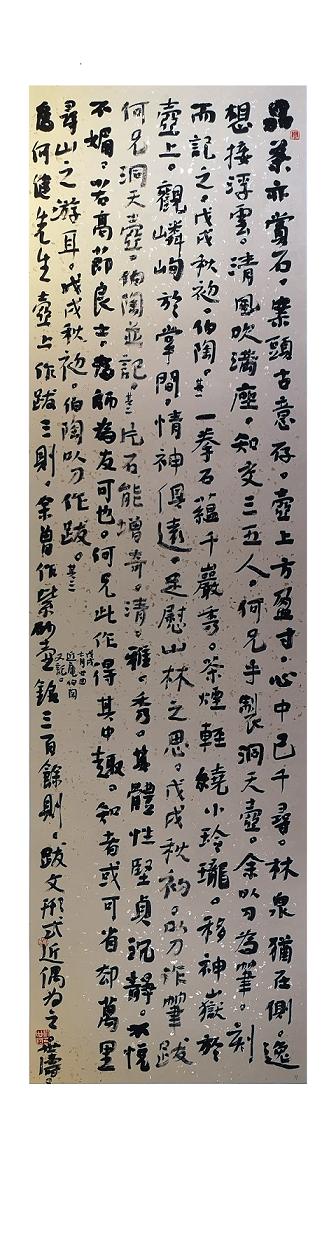 品茶亦賞石。案頭古意存。壺上方盈寸。心中已千尋。林泉猶在側。逸
想接浮雲。清風吹滿座。知交三五人。何兄手製洞天壺。余以刀為筆。刻
而記之。戊戌秋初。伯陶。其一 一拳石蘊千巖秀。茶煙輕繞小玲瓏。移神嶽於
壺上。觀嶙峋於掌間。情神俱遠。足慰山林之思。戊戌秋初。以刀作筆跋
何兄洞天壺。伯陶並記。其二 片石能增奇。清。雅。秀。其體性堅貞沉靜。不悅
不媚。若高節良士。為師為友可也。何兄此作得其中趣。知者或可省卻萬里
尋山之游耳。戊戌秋初。伯陶以刀作跋。其三
為何健先生壺上作跋三則。余曾作紫砂壺銘三百餘則。跋文形式近偶為之。
又記。